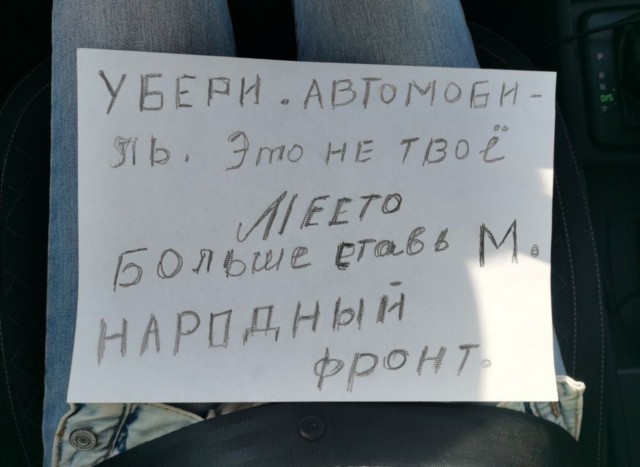 УБЕРИ. АВТОМОБИ-
ЛЬ. Это НЕ ТВОЁ
МЕСТО
БОЛЬШЕ ставь М.
НАРОДНЫЙ
ФРОНТ.